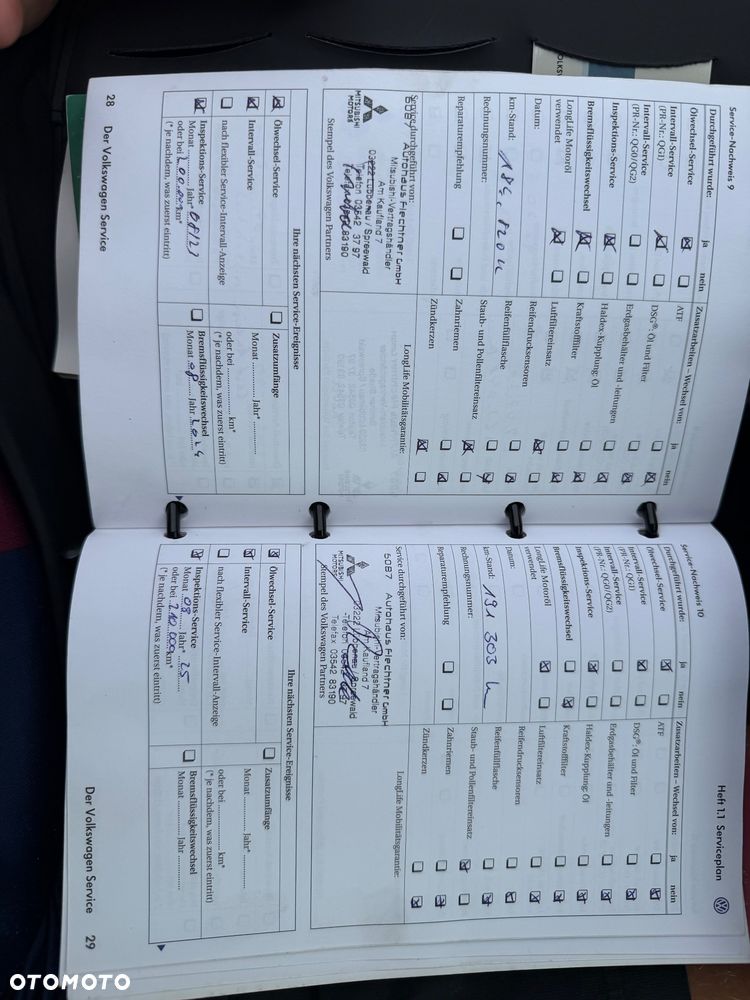 Service-Nachweis 9
Durchgeführt wurde: ja nein
Ölwechsel-Service
Intervall-Service
(PR-Nr.: QG1)
Intervall-Service
(PR-Nr.: QG0/QG2)
Inspektions-Service
Bremsflüssigkeitswechsel
LongLife Motoröl
verwendet
Datum:
km-Stand: 184.820 k
Rechnungsnummer:
Reparaturempfehlung
Service durchgeführt von:
6087 Autohaus Flechtner GmbH
Mitsubishi-Vertragshändler
Am Kaufland 7
03222 Lübbenau / Spreewald
Telefon 03542 37 97
83190
MITSUBISHI
MOTORS
Stempel des Volkswagen Partners
Zusatzarbeiten – Wechsel von: ja nein
ATF
DSG®: Öl und Filter
Erdgasbehälter und -leitungen
Haldex-Kupplung: Öl
Kraftstofffilter
Luftfiltereinsatz
Reifendrucksensoren
Reifenfüllflasche
Staub- und Pollenfiltereinsatz
Zahnriemen
Zündkerzen
LongLife Mobilitätsgarantie:
Ihre nächsten Service-Ereignisse
Ölwechsel-Service
Intervall-Service
nach flexibler Service-Intervall-Anzeige
Inspektions-Service
Monat Jahr* 08/23
oder bei km*
(* je nachdem, was zuerst eintritt)
Zusatzumfänge
Monat .............. Jahr* ..............
oder bei .................... km*
(* je nachdem, was zuerst eintritt)
Bremsflüssigkeitswechsel
Monat 08 Jahr 2024
28 Der Volkswagen Service
Service-Nachweis 10
Heft 1.1 Serviceplan
Durchgeführt wurde: ja nein
Ölwechsel-Service
Intervall-Service
(PR-Nr.: QG1)
Intervall-Service
(PR-Nr.: QG0/QG2)
Inspektions-Service
Bremsflüssigkeitswechsel
LongLife Motoröl
verwendet
Datum:
km-Stand: 191 303 k
Rechnungsnummer:
Reparaturempfehlung
Service durchgeführt von:
6087 Autohaus Flechtner GmbH
Mitsubishi-Vertragshändler
Am Kaufland 7
03222 Lübbenau / Spreewald
Telefon 03542 37 97
Telefax 03542 83190
MITSUBISHI
MOTORS
Stempel des Volkswagen Partners
Zusatzarbeiten – Wechsel von: ja nein
ATF
DSG®: Öl und Filter
Erdgasbehälter und -leitungen
Haldex-Kupplung: Öl
Kraftstofffilter
Luftfiltereinsatz
Reifendrucksensoren
Reifenfüllflasche
Staub- und Pollenfiltereinsatz
Zahnriemen
Zündkerzen
LongLife Mobilitätsgarantie:
Ihre nächsten Service-Ereignisse
Ölwechsel-Service
Intervall-Service
nach flexibler Service-Intervall-Anzeige
Inspektions-Service
Monat 08 Jahr* 25
oder bei 210.000 km*
(* je nachdem, was zuerst eintritt)
Zusatzumfänge
Monat .............. Jahr* ..............
oder bei .................... km*
(* je nachdem, was zuerst eintritt)
Bremsflüssigkeitswechsel
Monat .............. Jahr ..............
Der Volkswagen Service 29
OTOMOTO